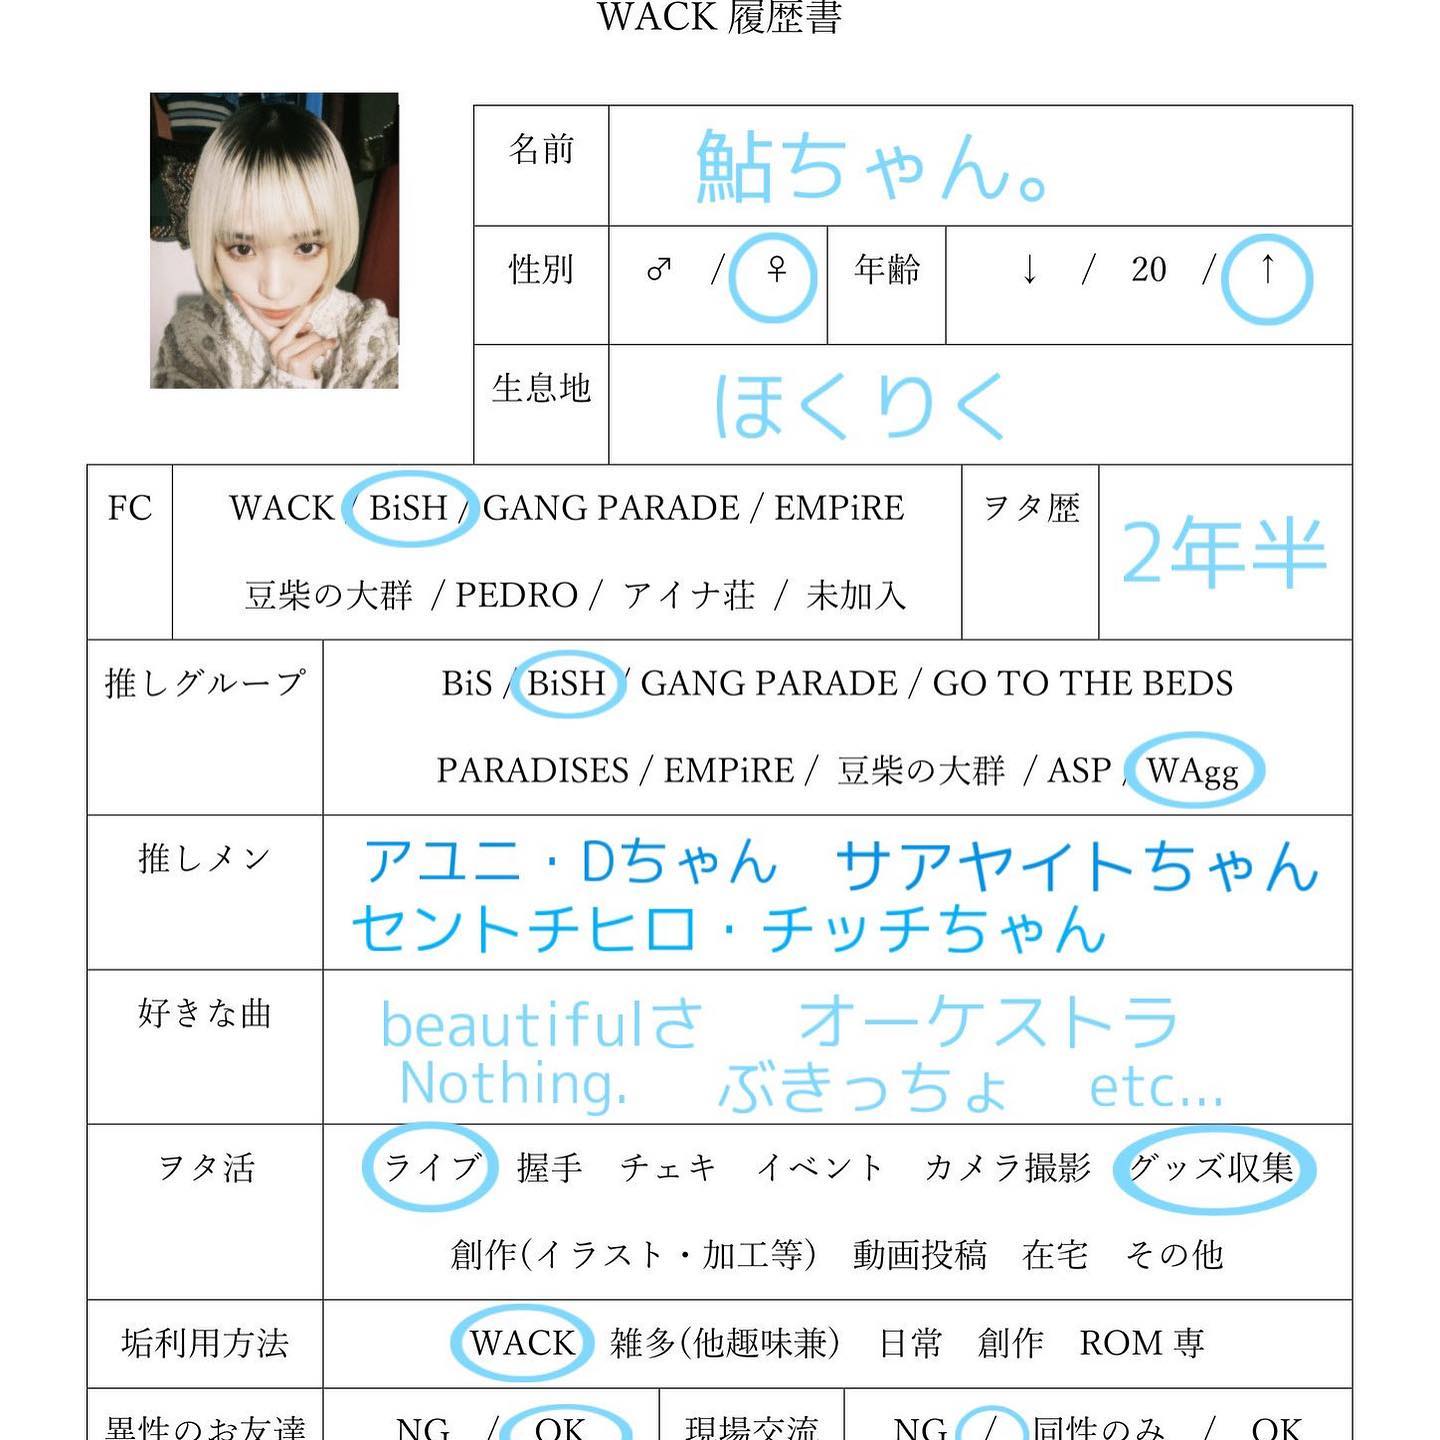 WACK 履歴書
名前 鮎ちゃん。
性別 ♂ / ♀ 年齢 ↓ / 20 / ↑
生息地 ほくりく
FC WACK / BiSH / GANG PARADE / EMPiRE ヲタ歴 2年半
豆柴の大群 / PEDRO / アイナ荘 / 未加入
推しグループ BiS / BiSH / GANG PARADE / GO TO THE BEDS
PARADISES / EMPiRE / 豆柴の大群 / ASP / WAgg
推しメン アユニ・Dちゃん サアヤイトちゃん
セントチヒロ・チッチちゃん
好きな曲 beautifulさ オーケストラ
Nothing. ぶきっちょ etc...
ヲタ活 ライブ 握手 チェキ イベント カメラ撮影 グッズ収集
創作(イラスト・加工等) 動画投稿 在宅 その他
垢利用方法 WACK 雑多(他趣味兼) 日常 創作 ROM 専
異性のお友達 NG / OK 現場交流 NG / 同性のみ / OK